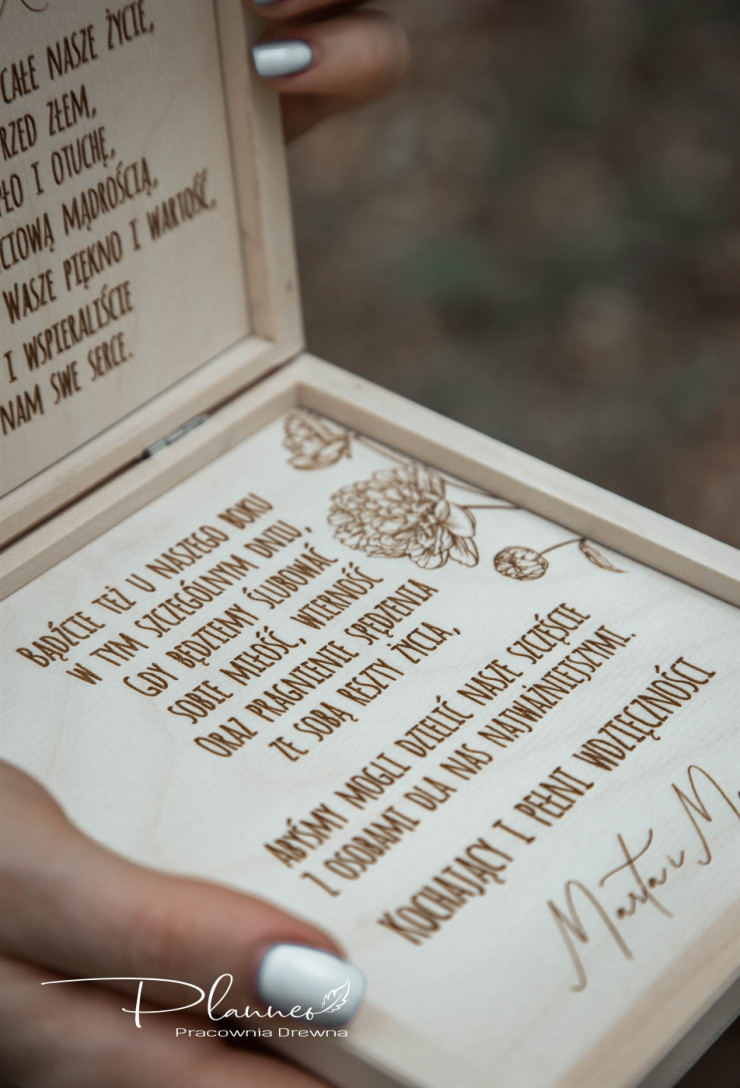 CAŁE NASZE ŻYCIE,
ZŁEM,
I OTUCHĘ,
MĄDROŚCIĄ,
WASZE PIĘKNO I WARTOŚĆ,
I WSPIERALIŚCIE
NAM SWE SERCE.
BĄDŹCIE TEŻ U NASZEGO BOKU
W TYM SZCZEGÓLNYM DNIU,
GDY BĘDZIEMY ŚLUBOWAĆ
SOBIE MIŁOŚĆ, WIERNOŚĆ
ORAZ PRAGNIENIE SPĘDZENIA
ZE SOBĄ RESZTY ŻYCIA,
ABYŚMY MOGLI DZIELIĆ NASZE SZCZĘŚCIE
Z OSOBAMI DLA NAS NAJWAŻNIEJSZYMI.
KOCHAJĄCY I PEŁNI WDZIĘCZNOŚCI
Marta i
Planneo
Pracownia Drewna